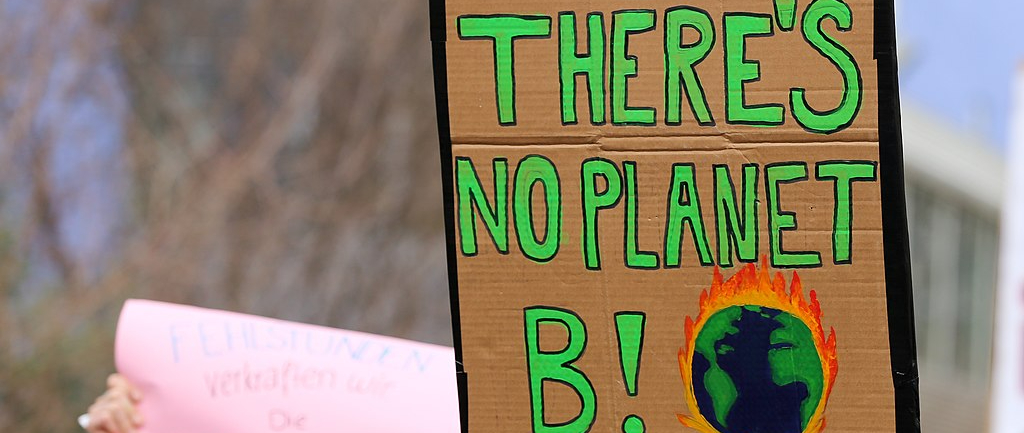 THERE'S
NO PLANET
B!
FEHLSTUNDEN
verkraften wir
Die